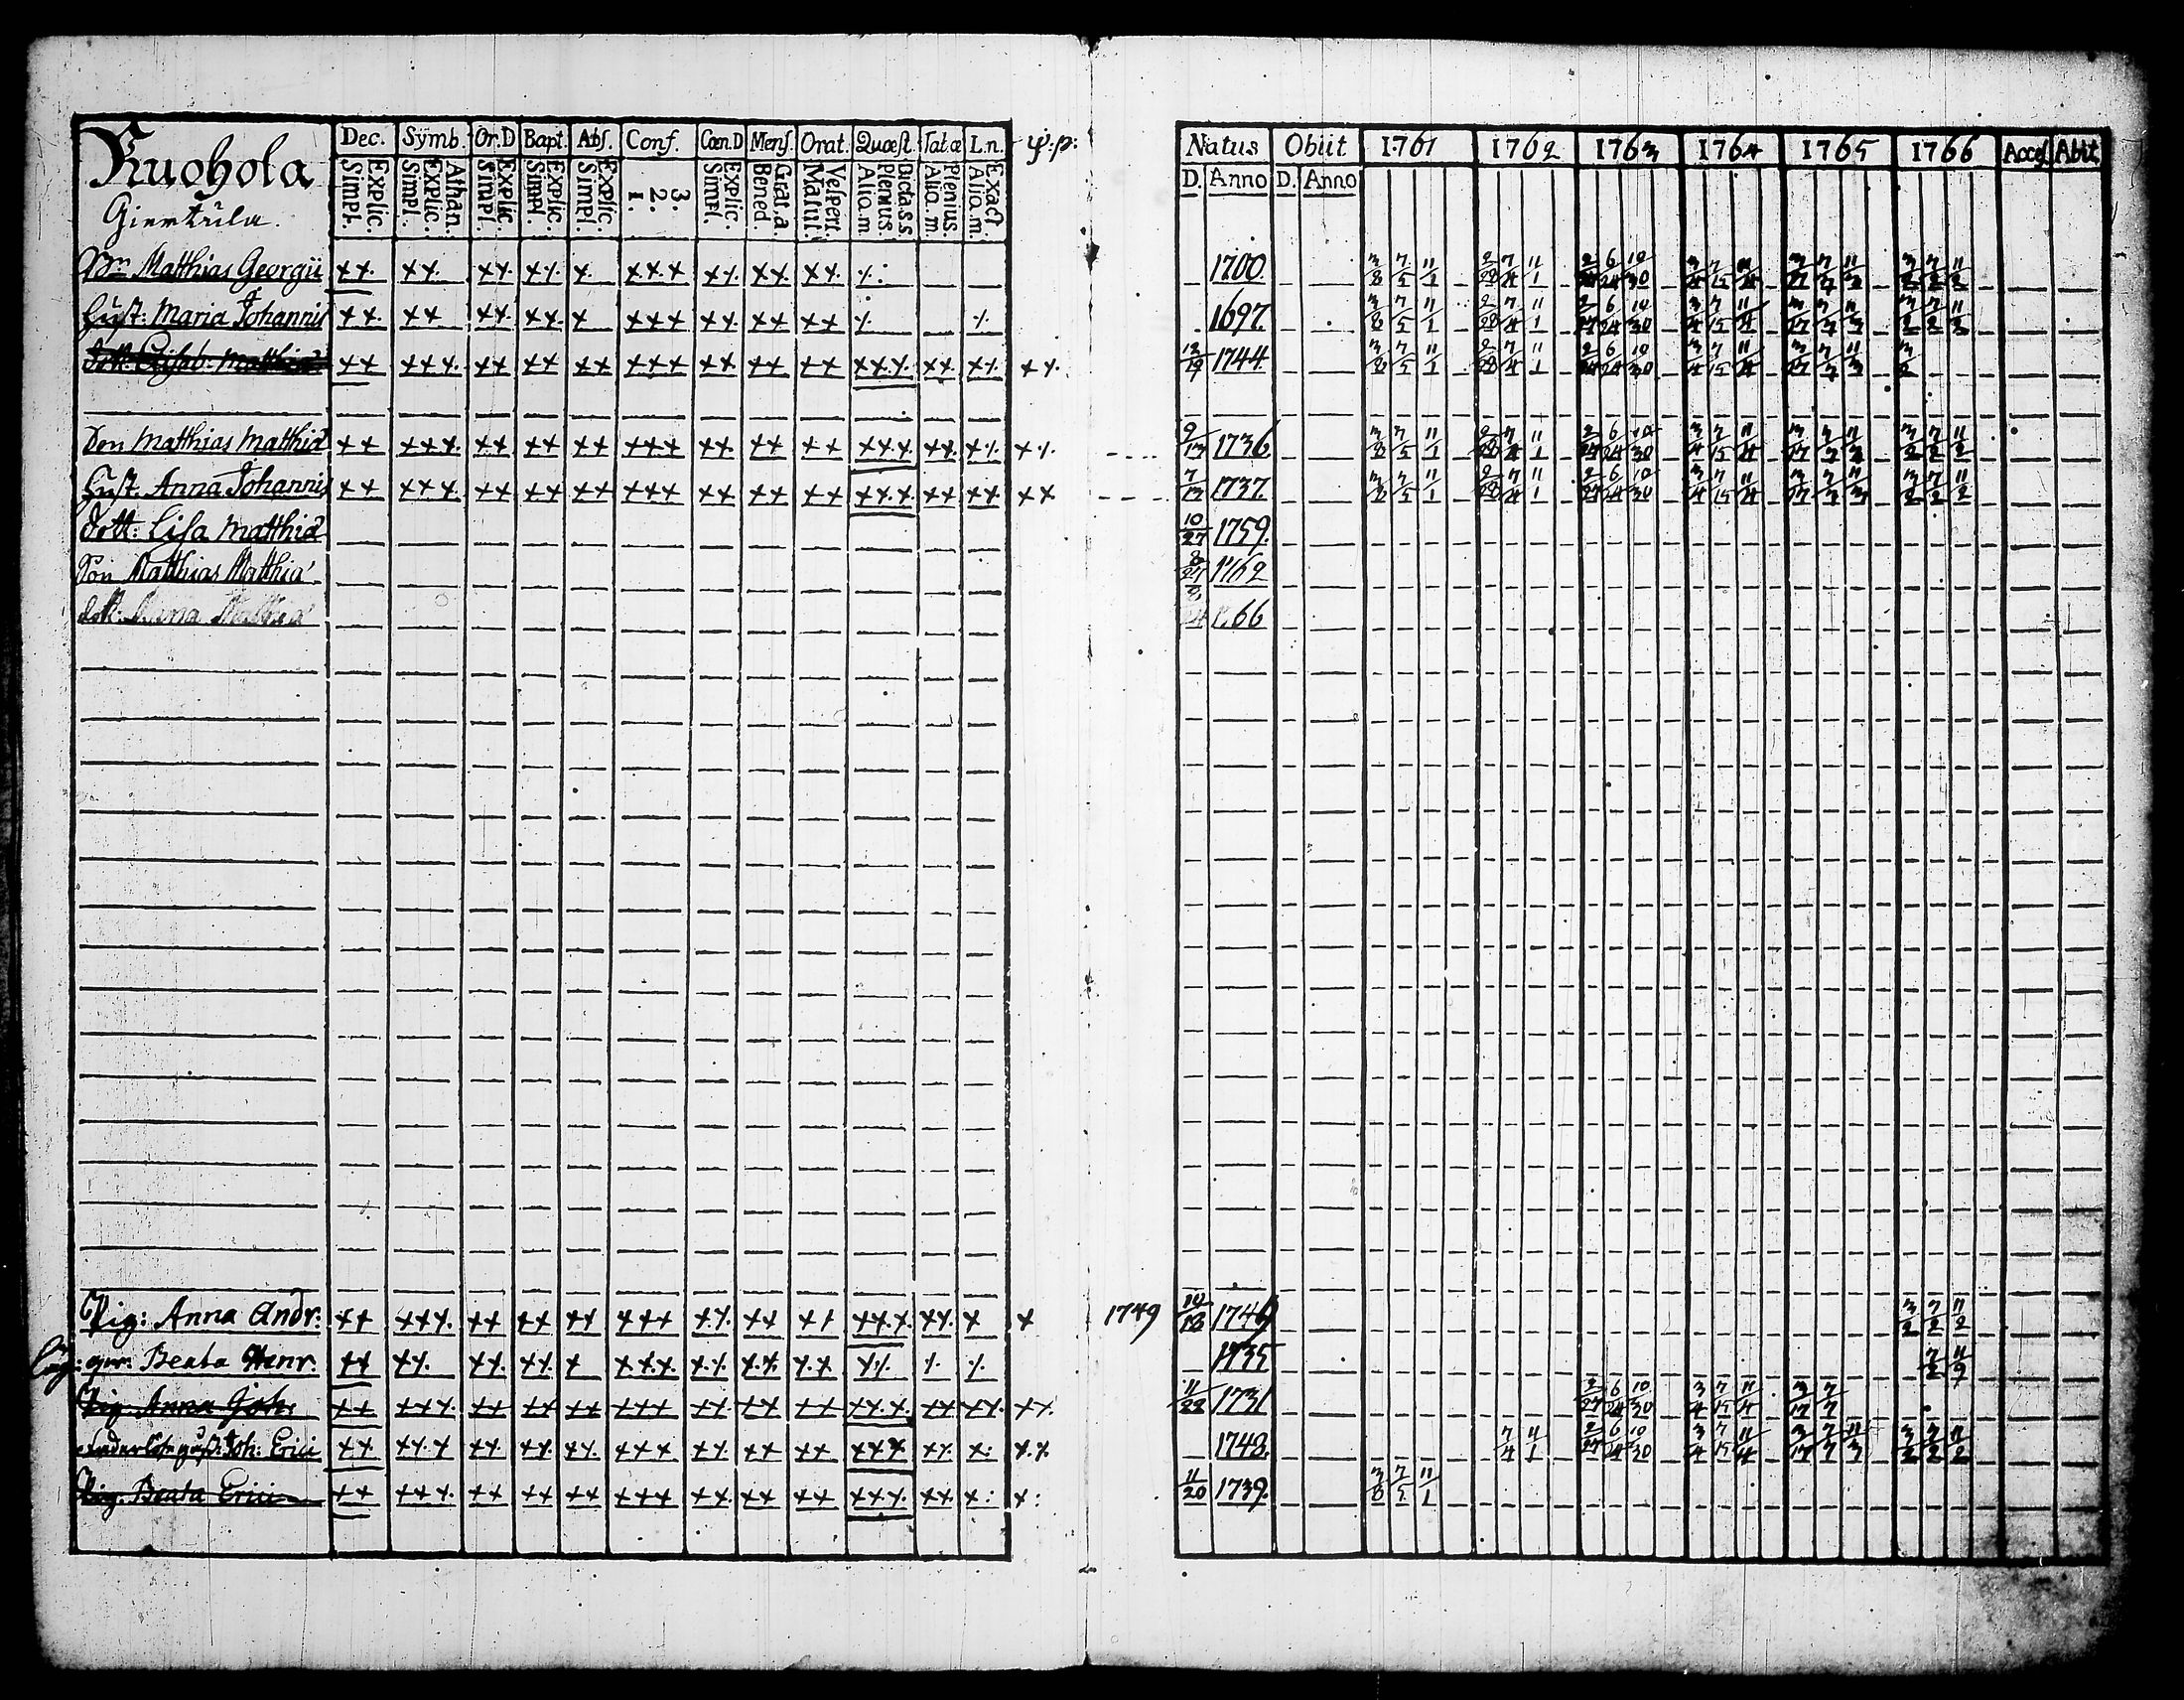 Ruohola Dec. Symb. Or.D Bapt. Abs. Conf. Cœn.D Mens. Orat. Quæst. Tab.œ L.n. ψ.p:
Explic. Simpl. Athan. Explic. Simpl. Explic. Simpl. Explic. Simpl. Explic. Simpl. 3. 2. 1. Explic. Simpl. Grat.a. Bened. Vespert. Matut. Dicta.s.s. Plenius. Aliq.m Plenius. Aliq.m Exact. Aliq.m
Giertula.
Matthias Georgii xx. xx. xx. xx. x. xxx xx. xx. xx. x:
Hust: Maria Johannis xx. xx xx. xx. x xxx xx. xx xx x. x.
dott: Elisab: Matthiæ xx xxx. xx xx xx xxx xx xx xx xxx. xx. xx. xx.
Son Matthias Matthiæ xx xxx. xx xx xx xxx xx. xx xx xxx. xx. xx. xx.
Hust. Anna Johannis xx xxx. xx xx xx xxx xx xx xx xxx. xx xx. xx
dott: Lisa Matthiæ
Son Matthias Matthiæ
dott:
Pig: Anna Andr: xx xxx. xx xx xx xxx xx. xx xx xxx. xx. x x
Beata Henr. xx xx. xx. xx. x xxx. xx. xx. xx xx. x. x.
Pig. Anna Joh: xx xxx. xx xx xx xxx xx. xx xx xxx. xx xx. xx.
Joh: Erici xx xxx xx. xx. xx. xxx xx. xx xx xxx xx. x: xx
Pig. Beata Erici xx xxx. xx xx xx xxx xx. xx xx xxx. xx. x: x:
Natus Obiit 1761 1762 1763 1764 1765 1766 Acces Abit
D. Anno D. Anno
1700. 3/8 7/5 11/1 2/28 7/4 11/1 2/27 6/24 10/30 3/4 7/15 11/4 3/17 7/7 11/3 3/2 7/2 11/2
1697. 3/8 7/5 11/1 2/28 7/4 11/1 2/27 6/24 10/30 3/4 7/15 11/4 3/17 7/7 11/3 3/2 7/2 11/2
12/19 1744. 3/8 7/5 11/1 2/28 7/4 11/1 2/27 6/24 10/30 3/4 7/15 11/4 3/17 7/7 11/3 3/2
9/13 1736 3/8 7/5 11/1 2/28 7/4 11/1 2/27 6/24 10/30 3/4 7/15 11/4 3/17 7/7 11/3 3/2 7/2 11/2
7/13 1737. 3/8 7/5 11/1 2/28 7/4 11/1 2/27 6/24 10/30 3/4 7/15 11/4 3/17 7/7 11/3 3/2 7/2 11/2
10/27 1759.
1762
66
1749 10/18 1749 3/2 7/2 11/2
1735 7/2 11/9
11/22 1731 2/27 6/24 10/30 3/4 7/15 11/4 3/17 7/7
1748. 7/4 11/1 2/27 6/24 10/30 3/4 7/15 11/4 3/17 7/7 11/3 3/2 7/2 11/2
11/20 1739. 3/8 7/5 11/1